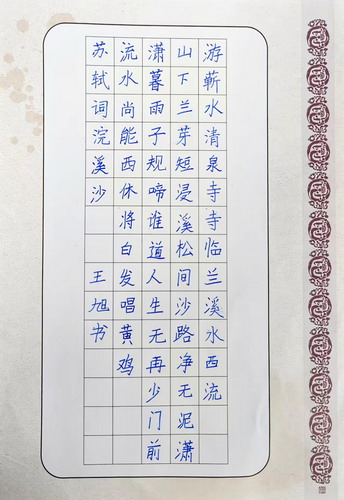 游蕲水清泉寺寺临兰溪水西流
山下兰芽短浸溪松间沙路净无泥潇
潇暮雨子规啼谁道人生无再少门前
流水尚能西休将白发唱黄鸡
苏轼词浣溪沙 王旭书